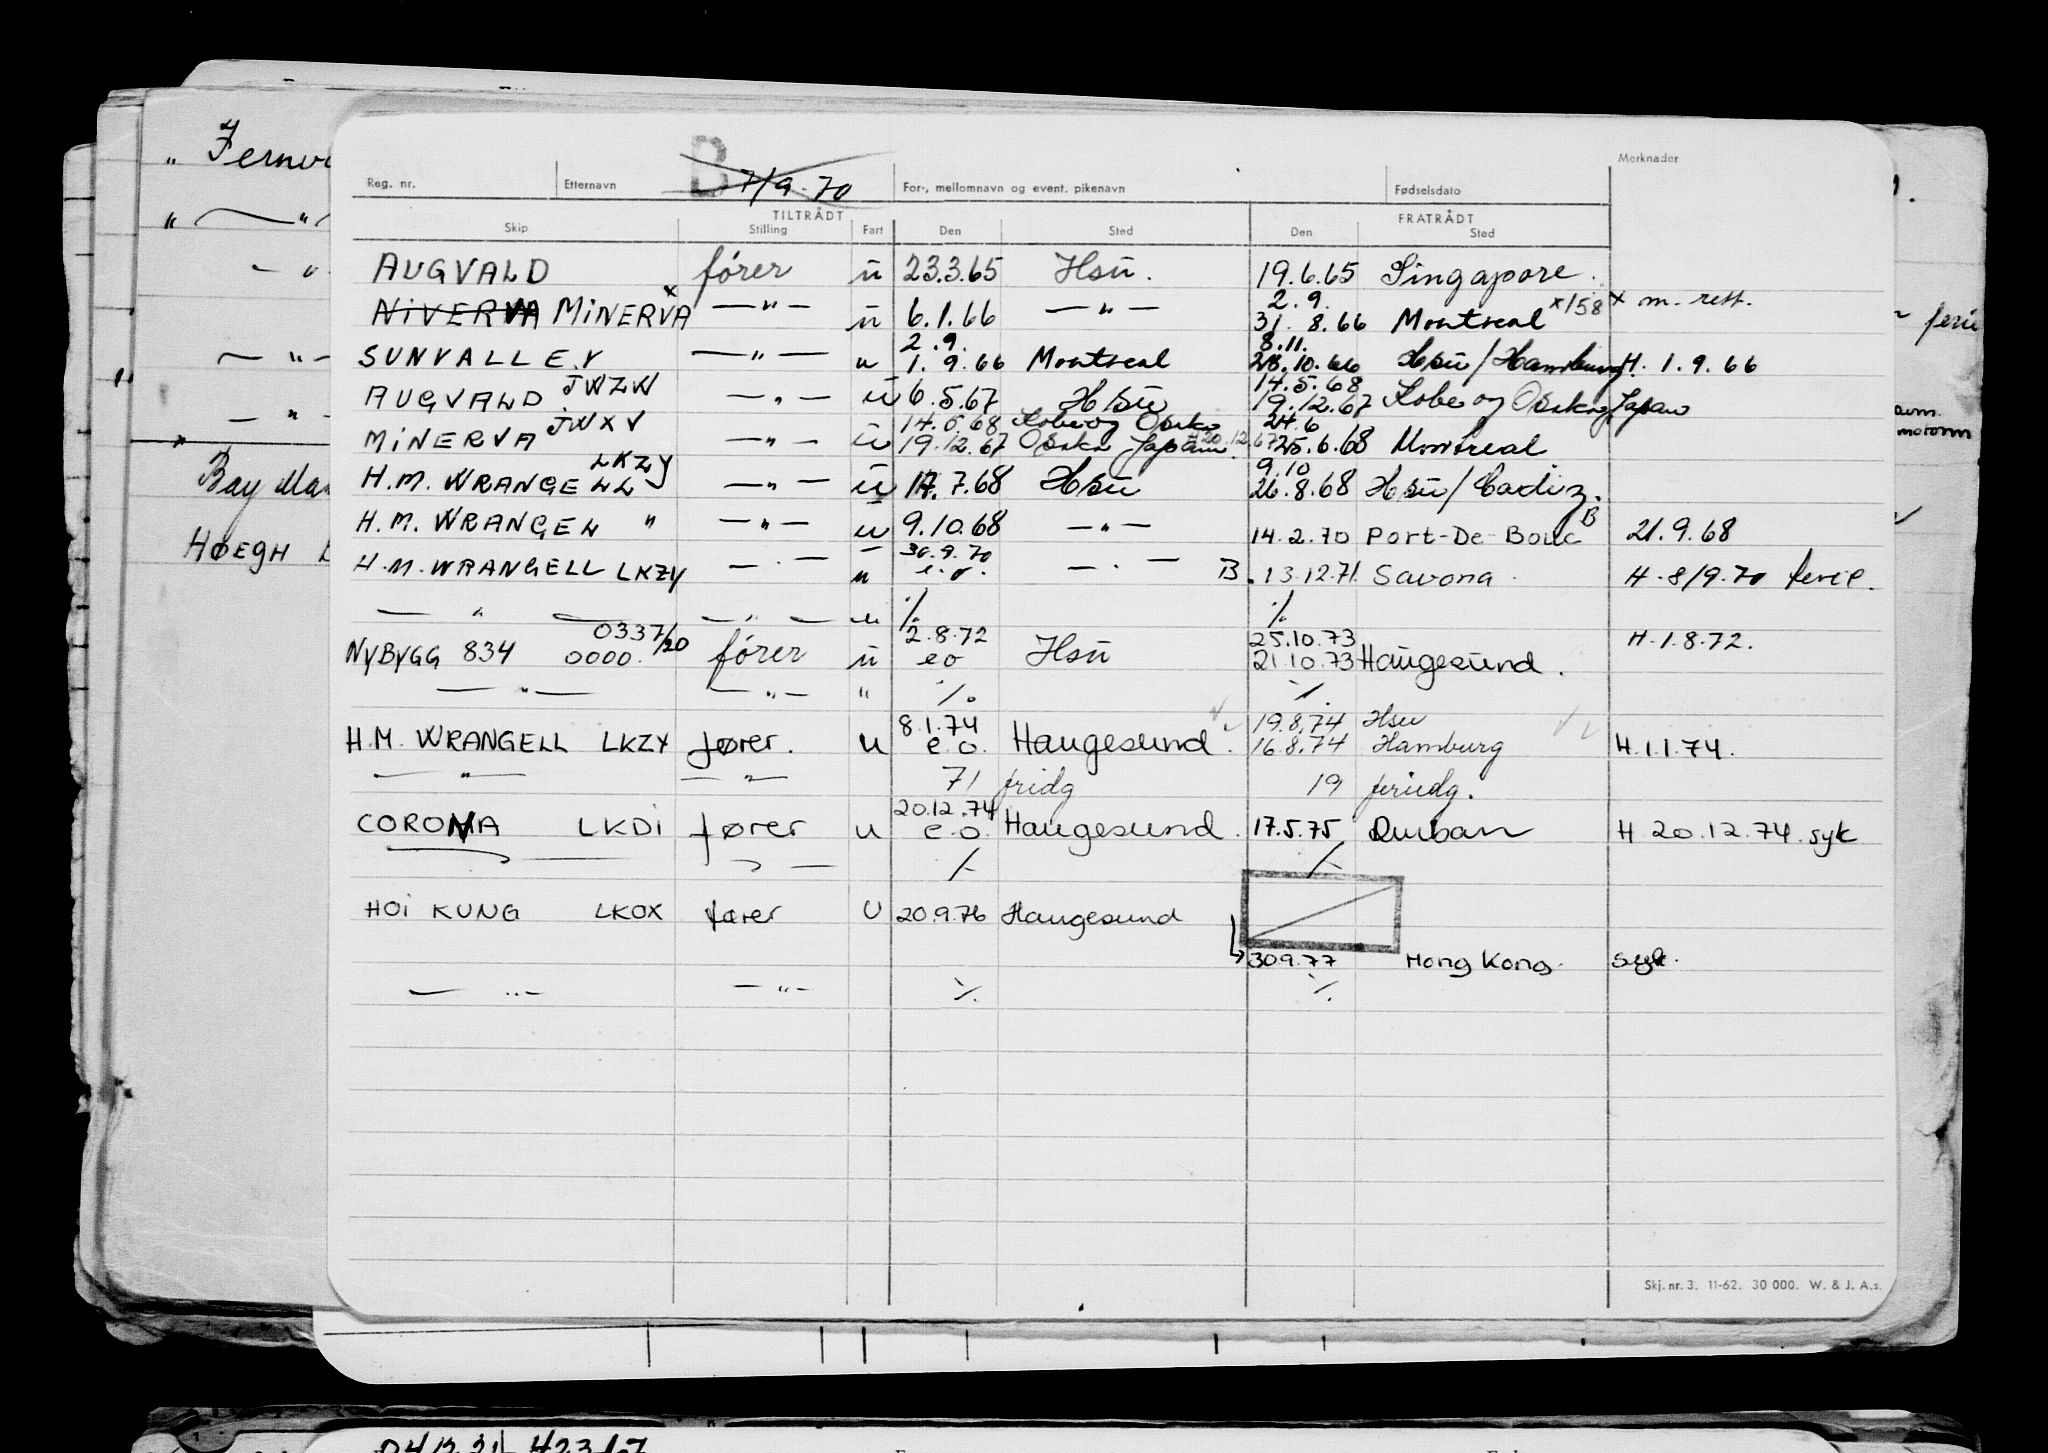 B 7/9-70
Merknader
Reg. nr. Etternavn For-, mellomnavn og event. pikenavn Fødselsdato
TILTRÅDT FRATRÅDT
Skip Stilling Fart Den Sted Den Sted
AUGVALD fører ü 23.3.65 Hsü. 19.6.65 Singapore.
2.9.
NiVERVA MiNERVA x —"— ü 6.1.66 —"— 31.8.66 Montreal x158 x m. rett.
2.9. 8.11.
SUNVALLEY —"— u 1.9.66 Montreal 28.10.66 Hsü/Hamburg H. 1.9.66
14.5.68
AUGVALD JWZW —"— ü 6.5.67 Hsü 19.12.67 Kobe og Osaka Japan
14.5.68 Kobe og Osaka 24.6
MiNERVA JWXV —"— ü 19.12.67 Osaka Japan. H20.12.67 25.6.68 Montreal
9.10
H.M. WRANGELL LKZY —"— ü 17.7.68 Hsü 26.8.68 Hsü/Cadiz.
H.M. WRANGEL " —"— u 9.10.68 —"— 14.2.70 Port-De-Bouc B 21.9.68
30.9.70
H.M. WRANGELL LKZY —"— u e.o. —"— B. 13.12.71. Savona. H-8/9.70 ferie.
—"— —"— u ·/. ·/.
0337/20 2.8.72 25.10.73 H.1.8.72.
NYBYGG 834 0000. fører ü eo Hsü 21.10.73 Haugesund.
—"— —"— " ·/. ·/.
8.1.74 19.8.74 Hsu
H.M. WRANGELL LKZY fører. u e.o. Haugesund. 16.8.74 Hamburg H.1.1.74.
—"— —"— 71 fridg 19 feriedg.
20.12.74
CORONA LKDI fører u e.o. Haugesund. 17.5.75 Durban H 20.12.74. syk
—"— ·/. ·/.
HOI KUNG LKOX fører U 20.9.76 Haugesund
30.9.77 Hong Kong. syk.
—"— —"— ·/. ·/.
Skj. nr. 3. 11-62. 30 000. W. & J. A.s.
"
"
Bay
HØEGH
ferie
motorm